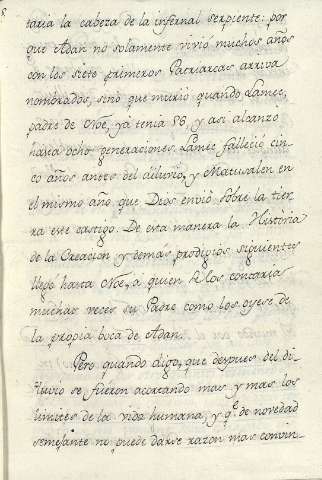 taria la cabeza de la infernal serpiente: por
que Adan no solamente vivió muchos años
con los siete primeros Patriarcas arriva
nombrados, sino que murió quando Lamec,
padre de Noè, yà tenia 56, y asi alcanzó
hasta ocho generaciones. Lamec falleció cin-
co años antes del diluvio, y Matusalen en
el mismo año que Dios envió sobre la tier
ra este castigo. De esta manera la Historia
de la Creacion y demás prodigios siguientes
llegó hasta Noè, à quien se los contaria
muchas veces su Padre como los oyese de
la propia boca de Adan.
Pero quando digo, que despues del di-
luvio se fueron acortando mas y mas los
limites de la vida humana, y q.e de novedad
semejante no puede darse razon mas convin-